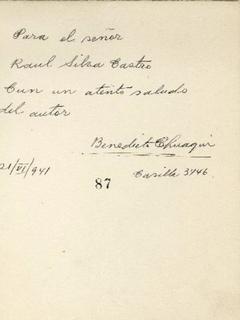 Para el señor
Raul Silva Castro
Cun un atento saludo
del autor
Benedicto Chuaqui
21/VI/941
87
Casilla 3746.